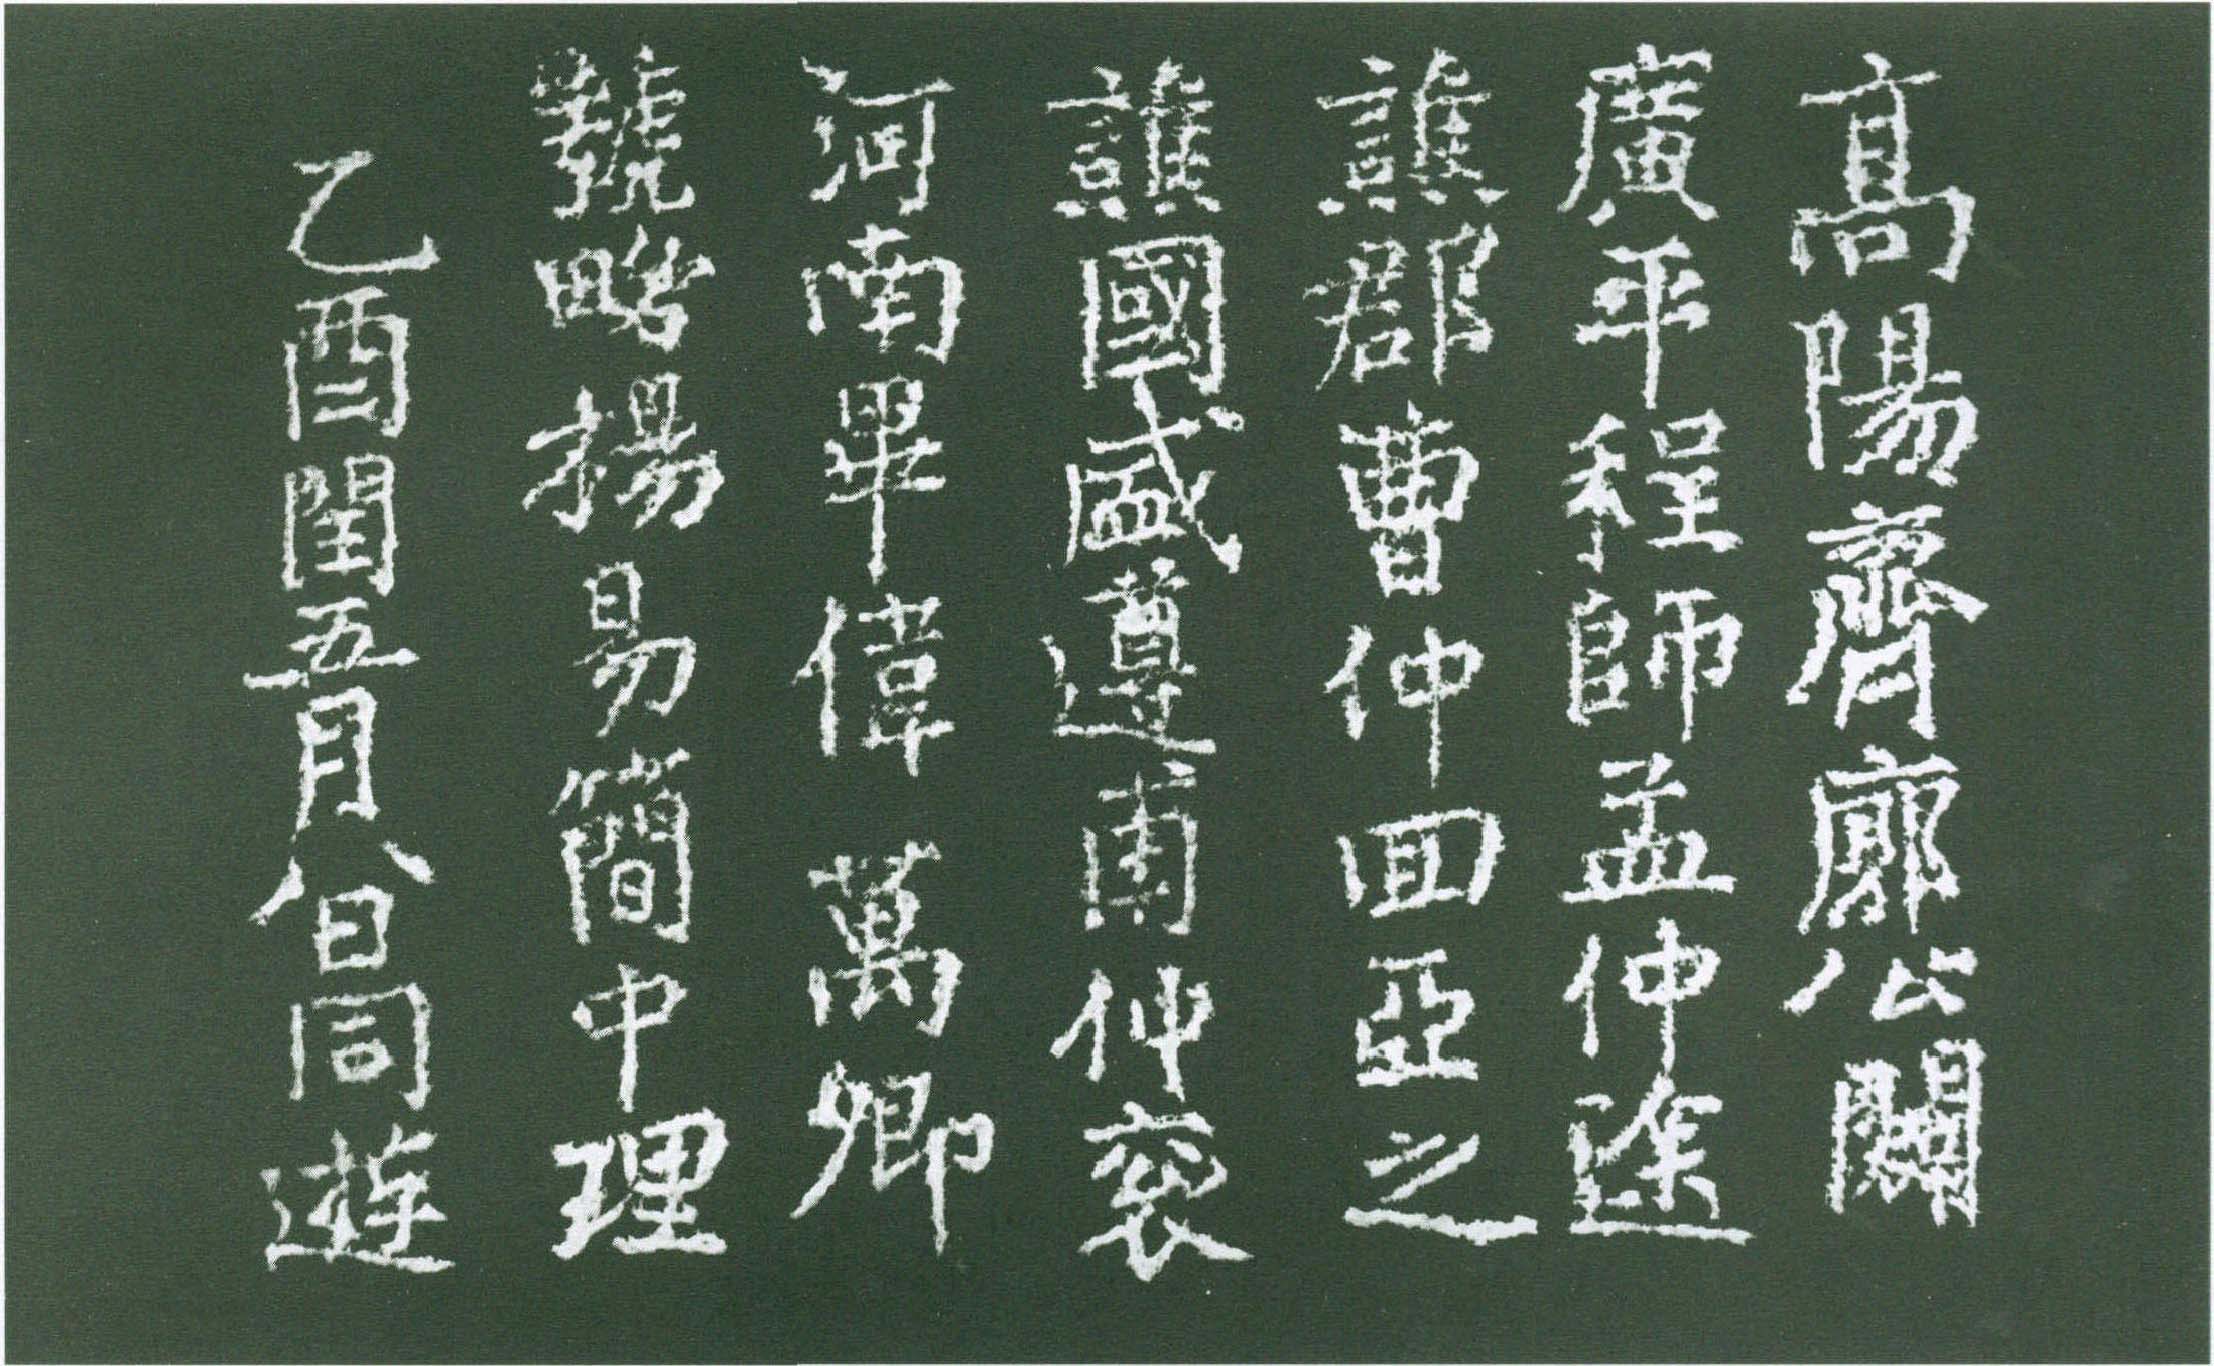 高陽齊廓公闢
廣平程師孟仲途
譙郡曹仲囬亞之
譙國盛遵甫仲衮
河南畢偉萬卿
虢畧揚易簡中理
乙酉閏五月八日同遊